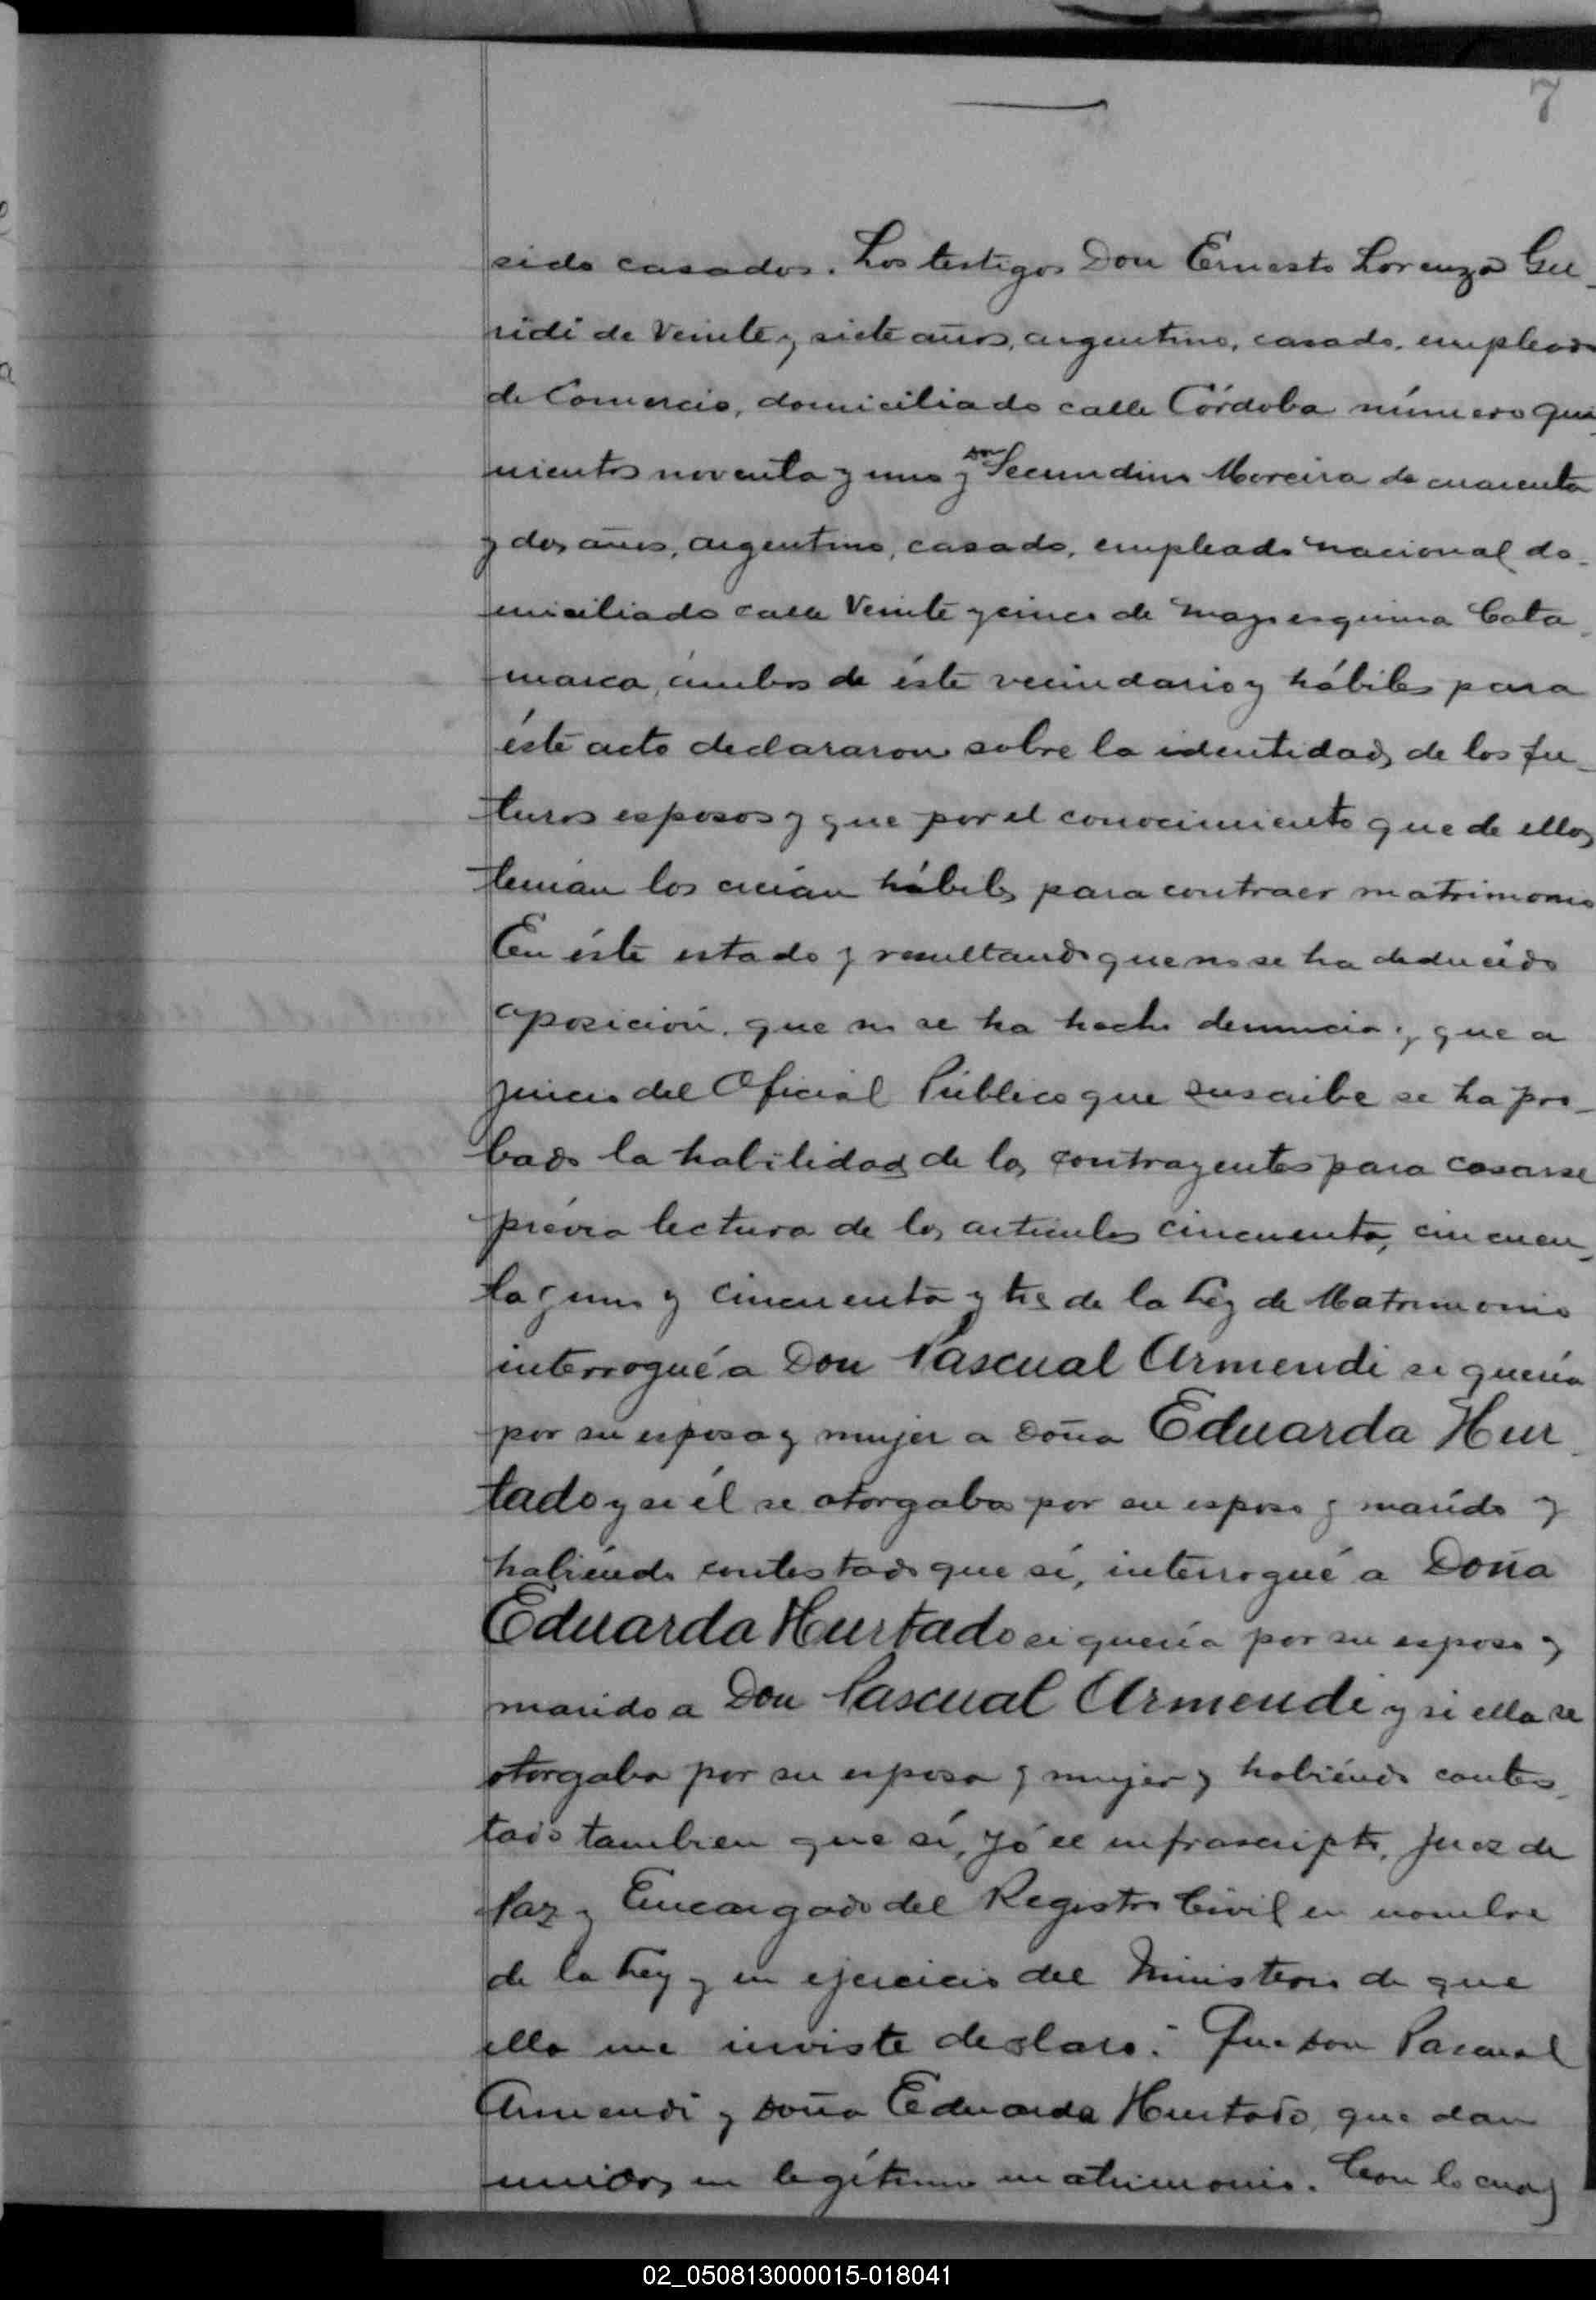 7
sido casados. Los testigos Don Ernesto Lorenzo Gu-
ridi de veinte y siete años, argentino, casado, empleado
de Comercio, domiciliado calle Córdoba número qui-
nientos noventa y uno y Don Secundino Moreira de cuarenta
y dos años, argentino, casado, empleado nacional do-
miciliado calle Veinte y cinco de Mayo esquina Cata-
marca, ámbos de éste vecindario y hábiles para
éste acto declararon sobre la identidad de los fu-
turos esposos y que por el conocimiento que de ellos
tenían los creían hábiles para contraer matrimonio
En éste estado y resultando que no se ha deducido
oposición, que no se ha hecho denuncia y que a
juicio del Oficial Público que suscribe se ha pro-
bado la habilidad de los contrayentes para casarse
prévia lectura de los articulos cincuenta, cincuen-
ta y uno y cincuenta y tres de la Ley de Matrimonio
interrogué a Don Pascual Armendi si quería
por su esposa y mujer a Doña Eduarda Hur-
tado y si él se otorgaba por su esposo y marido y
habiéndo contestado que sí, interrogué a Doña
Eduarda Hurtado si quería por su esposo y
marido a Don Pascual Armendi y si ella se
otorgaba por su esposa y mujer y habiéndo contes-
tado tambien que sí, yó el infrascripto, Juez de
Paz y Encargado del Registro Civil en nombre
de la Ley y en ejercicio del Ministerio de que
ella me inviste declaro: Que Don Pascual
Armendi y Doña Eduarda Hurtado, que dan
unidos en legítimo matrimonio. Con lo cual
02_050813000015-018041